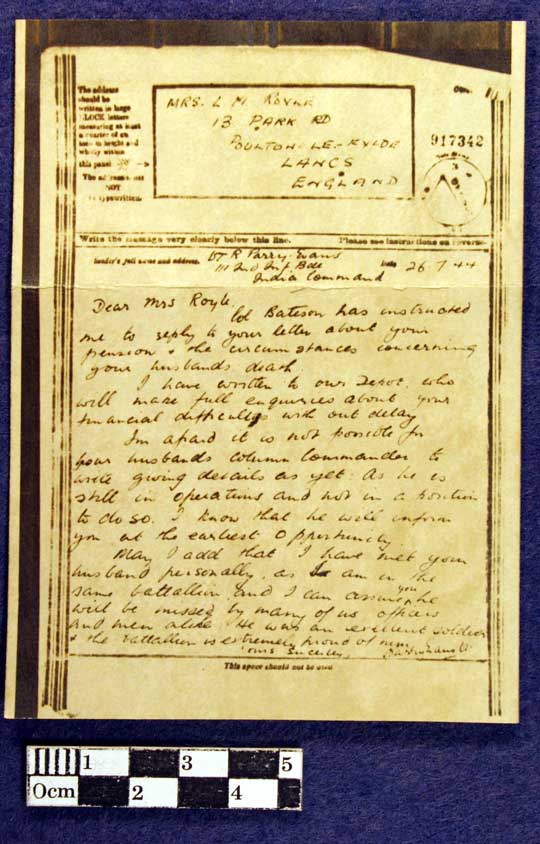 The address
should be
written in large
BLOCK letters
measuring at least
a quarter of an
inch in height and
wholly within
this panel
The address must
NOT
be typewritten.
MRS. L M. ROYLE
13 PARK RD
POULTON-LE-FYLDE
LANCS
ENGLAND
917342
Write the message very clearly below this line.
Please see instructions on reverse
Sender's full name and address
Lt R Parry-Evans
111 Ind Inf. Bde
India Command
Date 26 7 44
Dear Mrs Royle,
Col Bateson has instructed
me to reply to your letter about your
pension & the circumstances concerning
your husbands death.
I have written to our Depot, who
will make full enquiries about your
financial difficulties with out delay
I'm afraid it is not possible for
your husbands column commander to
write giving details as yet. As he is
still in operations and not in a position
to do so. I know that he will inform
you at the earliest opportunity.
May I add that I have met your
husband personally, as I am in the
same battalion, and I can assure you he
will be missed by many of us officers
and men alike. He was an excellent soldier
& the battallion is extremely proud of him
Yours sincerely,
This space should not be used
0cm 1 2 3 4 5